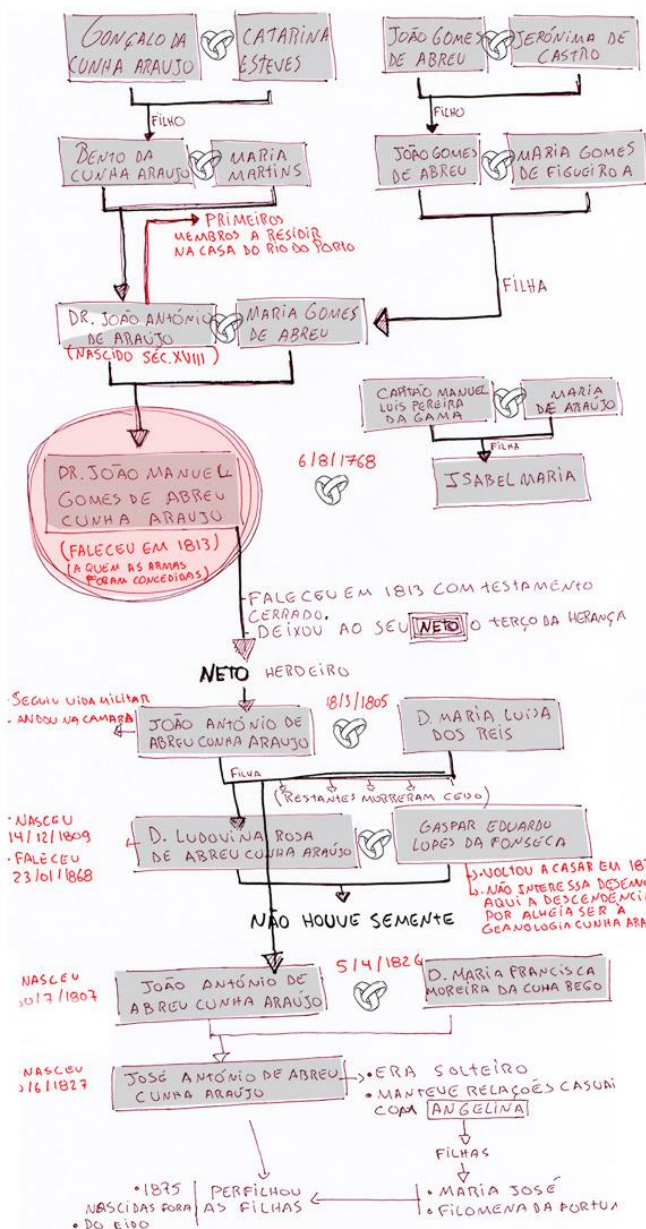 GONÇALO DA
CUNHA ARAUJO
CATARINA
ESTEVES
JOÃO GOMES
DE ABREU
JERÓNIMA DE
CASTRO
FILHO
FILHO
BENTO DA
CUNHA ARAUJO
MARIA
MARTINS
JOÃO GOMES
DE ABREU
MARIA GOMES
DE FIGUEIROA
PRIMEIROS
MEMBROS A RESIDIR
NA CASA DO RIO DO PORTO
FILHA
DR. JOÃO ANTÓNIO
DE ARAÚJO
(NASCIDO SÉC. XVIII)
MARIA GOMES
DE ABREU
CAPITÃO MANUEL
LUIS PEREIRA
DA GAMA
MARIA
DE ARAÚJO
FILHA
ISABEL MARIA
6/8/1768
DR. JOÃO MANUEL
GOMES DE ABREU
CUNHA ARAUJO
(FALECEU EM 1813)
(A QUEM AS ARMAS
FORAM CONCEDIDAS)
- FALECEU EM 1813 COM TESTAMENTO
CERRADO.
- DEIXOU AO SEU NETO O TERÇO DA HERANÇA
NETO HERDEIRO
· SEGUIU VIDA MILITAR
· ANDOU NA CAMARA
JOÃO ANTÓNIO DE
ABREU CUNHA ARAUJO
18/3/1805
D. MARIA LUISA
DOS REIS
FILHA
(RESTANTES MORRERAM CEDO)
· NASCEU
14/12/1809
· FALECEU
23/01/1868
D. LUDOVINA ROSA
DE ABREU CUNHA ARAÚJO
GASPAR EDUARDO
LOPES DA FONSECA
· VOLTOU A CASAR EM 18
· NÃO INTERESSA
AQUI A
POR ALHEIA SER À
GEANOLOGIA CUNHA
NÃO HOUVE SEMENTE
NASCEU
/7/1807
JOÃO ANTÓNIO DE
ABREU CUNHA ARAÚJO
5/4/1826
D. MARIA FRANCISCA
MOREIRA DA CUHA REGO
NASCEU
/6/1827
JOSÉ ANTÓNIO DE ABREU
CUNHA ARAÚJO
· ERA SOLTEIRO
· MANTEVE RELAÇÕES
COM ANGELINA
FILHAS
· MARIA JOSÉ
· FILOMENA DA
PERFILHOU
AS FILHAS
· 1875
NASCIDAS FORA
· DO EIDO